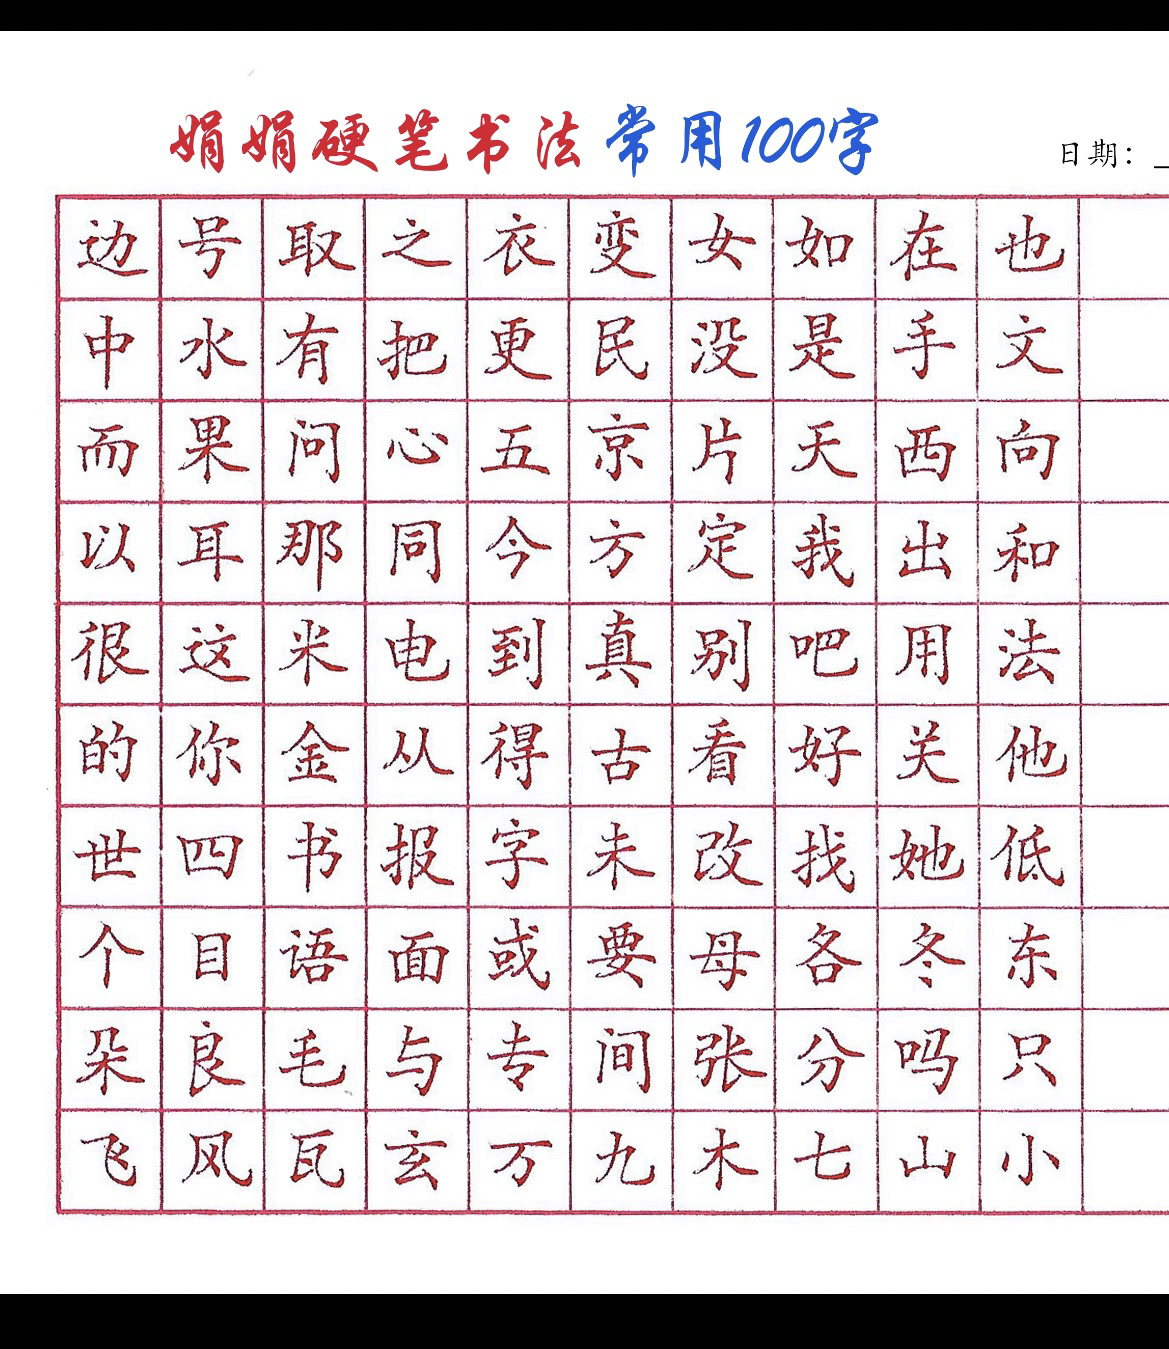 娟娟硬笔书法常用100字
日期：
边号取之衣变女如在也
中水有把更民没是手文
而果问心五京片天西向
以耳那同今方定我出和
很这米电到真别吧用法
的你金从得古看好关他
世四书报字未改找她低
个目语面或要母各冬东
朵良毛与专间张分吗只
飞风瓦玄万九木七山小